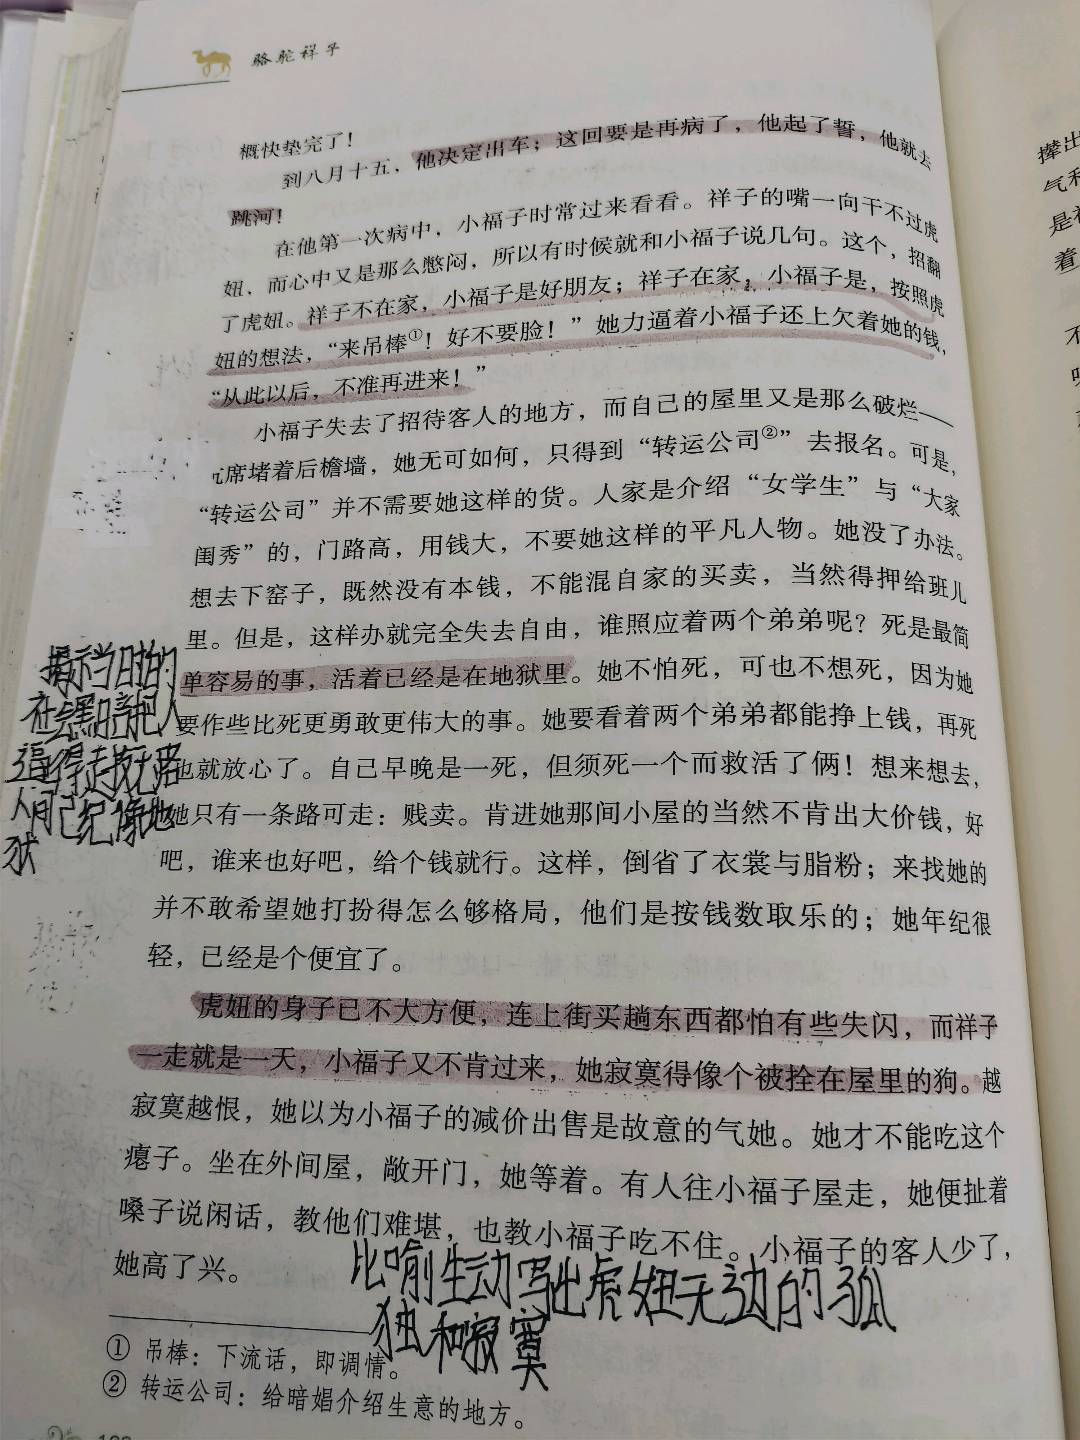 骆驼祥子
概快垫完了！
到八月十五，他决定出车；这回要是再病了，他起了誓，他就去
跳河！
在他第一次病中，小福子时常过来看看。祥子的嘴一向干不过虎
妞，而心中又是那么憋闷，所以有时候就和小福子说几句。这个，招翻
了虎妞。祥子不在家，小福子是好朋友；祥子在家，小福子是，按照虎
妞的想法，“来吊棒①！好不要脸！”她力逼着小福子还上欠着她的钱，
“从此以后，不准再进来！”
小福子失去了招待客人的地方，而自己的屋里又是那么破烂——
席堵着后檐墙，她无可如何，只得到“转运公司②”去报名。可是，
“转运公司”并不需要她这样的货。人家是介绍“女学生”与“大家
闺秀”的，门路高，用钱大，不要她这样的平凡人物。她没了办法。
想去下窑子，既然没有本钱，不能混自家的买卖，当然得押给班儿
里。但是，这样办就完全失去自由，谁照应着两个弟弟呢？死是最简
单容易的事，活着已经是在地狱里。她不怕死，可也不想死，因为她
要作些比死更勇敢更伟大的事。她要看着两个弟弟都能挣上钱，再死
也就放心了。自己早晚是一死，但须死一个而救活了俩！想来想去，
她只有一条路可走：贱卖。肯进她那间小屋的当然不肯出大价钱，好
吧，谁来也好吧，给个钱就行。这样，倒省了衣裳与脂粉；来找她的
并不敢希望她打扮得怎么够格局，他们是按钱数取乐的；她年纪很
轻，已经是个便宜了。
虎妞的身子已不大方便，连上街买趟东西都怕有些失闪，而祥子
一走就是一天，小福子又不肯过来，她寂寞得像个被拴在屋里的狗。越
寂寞越恨，她以为小福子的减价出售是故意的气她。她才不能吃这个
瘪子。坐在外间屋，敞开门，她等着。有人往小福子屋走，她便扯着
嗓子说闲话，教他们难堪，也教小福子吃不住。小福子的客人少了，
她高了兴。
① 吊棒：下流话，即调情。
② 转运公司：给暗娼介绍生意的地方。
揭示当时的
社会黑暗把人
逼得走投无路
人间已纪像地
狱
比喻生动写出虎妞无边的孤
独和寂寞